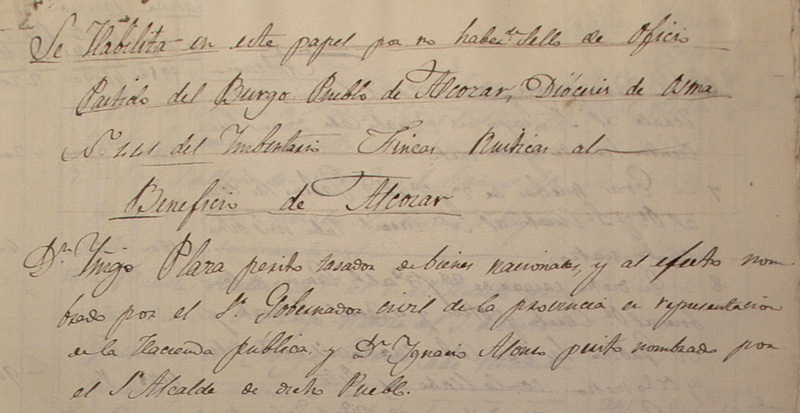 Se Habilita en este papel por no haber Sello de Oficio
Partido del Burgo Pueblo de Alcozar, Diócesis de Osma
Nº del Imbentario Fincas Rusticas al
Beneficio de Alcozar
Dn Yñigo Plaza perito tasador de bienes nacionales, y al efecto nom
brado por el Sr Gobernador civil de la provincia en representacion
de la Hacienda pública, y Dn Ygnacio Alonso perito nombrado por
el Sr Alcalde de dicho Pueblo.